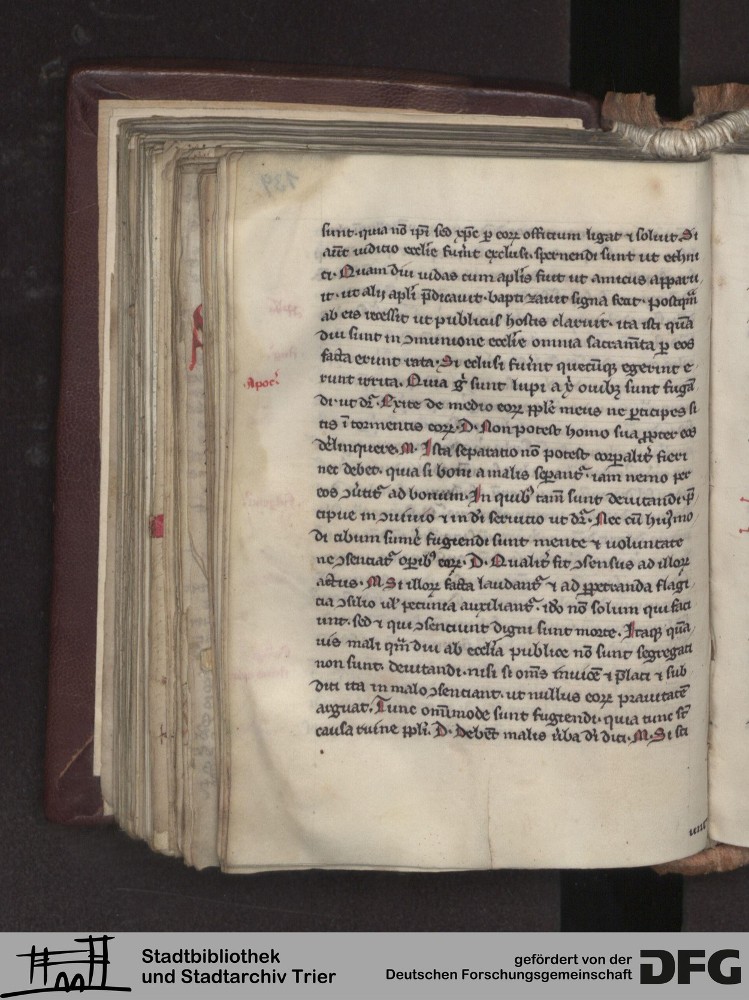 139
sunt. quia nō ip̄i sed xp̄c p̱ eoꝝ officium ligat ⁊ soluit. Si
aūt iudicio eccl̄ie fuīnt exclusi. spernendi sunt ut ethni
ci. Quam diu iudas cum apl̄is fuit ut amicus apparu
it. ut alij apl̄i p̄dicauit. bapti zauit signa fecit. postqm̄
ab eis recessit ut publicus hostis claruit. ita isti quā
diu sunt in ɔmunione eccl̄ie omnia sacram̄ta p̱ eos
facta erunt rata. Si eclusi fuīnt quecūqꝫ egerint e
runt irrita. Quia g̊ sunt lupi a x̄ ouibꝫ sunt fugā
Apocˀ.
di. ut dr̄. Exite de medio eoꝝ ppl̄e meus ne p̱ticipes si
tis ī tormentis eoꝝ. D. Non potest homo sua ꝓpter eos
delinquere. M. Ista separatio nō potest corꝑalit̄ fieri
nec debet. quia si boni a malis seꝑant̄. iam nemo per
eos ɔūtit̄ ad bonum. In quibꝫ tam̄ sunt deuitandi. p̄
cipue in ɔuiuio ⁊ in dī seruicio ut dr̄. Nec cū huiꝰmo
di cibum sumē fugiendi sunt mente ⁊ uoluntate
ne ɔsenciat̄ oꝑibꝫ eoꝝ. D. Qualit̄ fit ɔsensus ad illoꝝ
actus. M. Si illoꝝ facta laudant̄ ⁊ ad ꝑpetranda flagi
cia ɔsilio ul̄ pecunia auxiliant̄. iđo nō solum qui faci
unt. sed ⁊ qui ɔsenciunt digni sunt morte. Itaqꝫ quā
uis mali qm̄ diu ab eccl̄ia publice nō sunt segregati
non sunt deuitandi. nisi si om̄s inuicē ⁊ p̄laci ⁊ sub
diti ita in malo ɔsenciant. ut nullus eoꝝ prauitatē
arguat. Tunc om̄imode sunt fugiendi. quia tunc st̄
causa ruine ppl̄i. D. Debēt malis ūba dī dici. M. Si sci
Stadtbibliothek
und Stadtarchiv Trier
gefördert von der
Deutschen Forschungsgemeinschaft
DFG